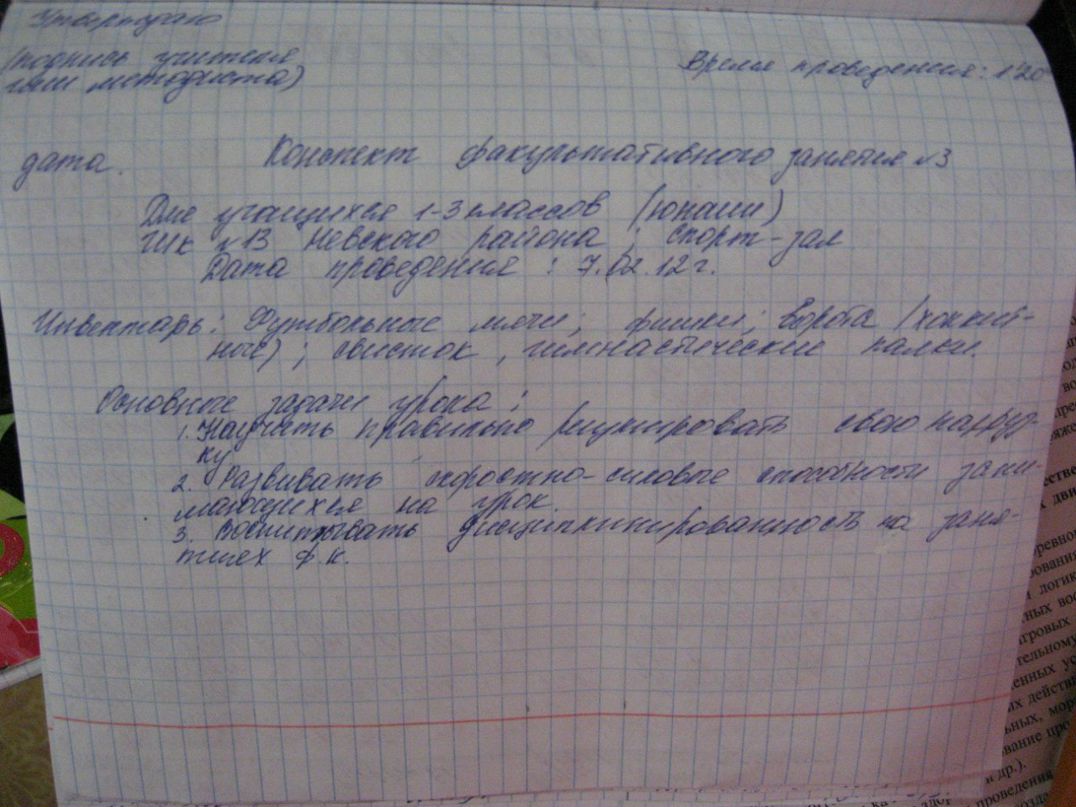 Утверждаю
(подпись учителя
или методиста)
Время проведения: 1'20
дата.
Конспект факультативного занятия №3
Для учащихся 1-3 классов (юноши)
№13 Невского района; спорт-зал
Дата проведения: 7.02.12г.
Инвентарь: Футбольные мячи; фишки; ворота (хоккей-
ные); свисток, гимнастические палки.
Основные задачи урока:
1. Научить правильно свою нагруз-
ку
2. Развивать скоростно-силовые способности зани-
мающихся на урок.
3. Воспитывать дисциплинированность на заня-
тиях ф.к.
движ
логик
игровых
тельному
действи
и др.).
проведения